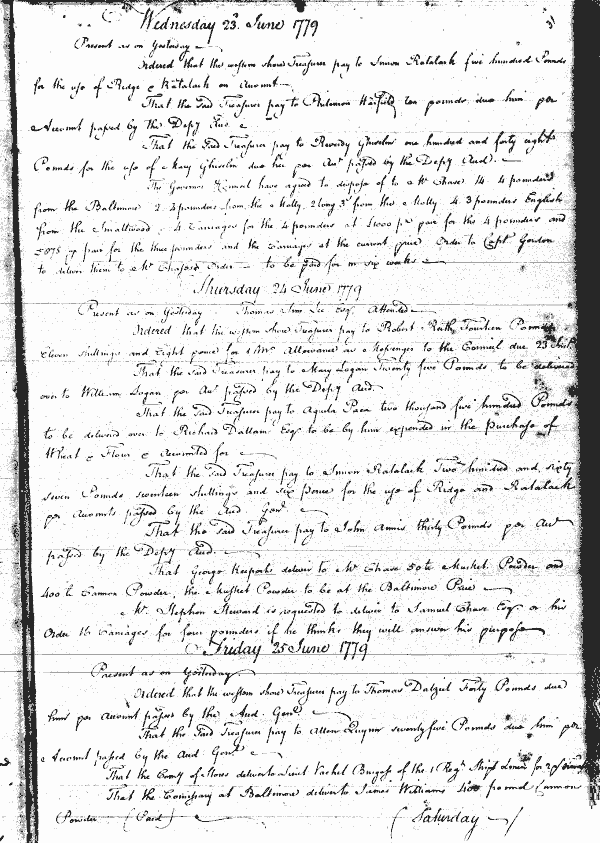 Wednesday 23d June 1779
31
Present as on Yesterday
Ordered that the western shore Treasurer pay to Simon Ratalack five hundred Pounds
for the use of Ridge & Ratalack on Account
That the said Treasurer pay to Philemon ten pounds due him per
Account passed by the Depy Aud
That the said Treasurer pay to Reverdy Ghiselin one hundred and forty eight
Pounds for the use of Mary Ghiselin due her per Acct passed by the Depy Aud.
The Governor & Council have agreed to dispose of to Mr Chase 14 4 pounders
from the Baltimore 2 2 pounders from the Molly 2 long 3s from the Molly 4 3 pounders English
from the Smallwood, 4 Carriages for the 4 pounders at £1000 pr pair for the 4 pounders and
£875 pr pair for the three pounders and the Carriages at the current price Order to Capt Gordon
to deliver them to Mr Chases Order to be paid for in six weeks
Thursday 24 June 1779
Present as on Yesterday Thomas Sim Lee Esqr Attended
Ordered that the western shore Treasurer pay to Robert Reith Fourteen Pounds
Eleven shillings and Eight pence for Allowance as Messenger to the Council due 23 Inst
That the said Treasurer pay to Mary Logan Twenty five Pounds to be delivered
over to William Logan per Acct passed by the Depy Aud
That the said Treasurer pay to Aquila Paca two thousand five hundred Pounds
to be delivered over to Richard Dallam Esqr to be by him expended in the Purchase of
Wheat & Flour & Accounted for
That the said Treasurer pay to Simon Ratalack Two hundred and sixty
seven Pounds seventeen shillings and six pence for the use of Ridge and Ratalack
per Accounts passed by the Aud. Genl
That the said Treasurer pay to John Annis thirty Pounds per Acct
passed by the Depy Aud.
That George Keeports deliver to Mr Chase 50 lb Musket Powder and
400 lb Cannon Powder, the Musket Powder to be at the Baltimore Price
Mr Stephen Steward is requested to deliver to Samuel Chase Esqr or his
Order 16 Carriages for four pounders if he thinks they will answer his purpose
Friday 25 June 1779
Present as on Yesterday
Ordered that the western shore Treasurer pay to Thomas Dalziel Forty Pounds due
him per Account passed by the Aud. Genl
That the said Treasurer pay to Allen Quynn seventy five Pounds due him per
Account passed by the Aud. Genl
That the Comy of Stores deliver to Lieut Vachel Burgess of the 1 Regt for 2
That the Comissary at Baltimore deliver to James Williams 400 pound Cannon
Powder (Paid)
(Saturday